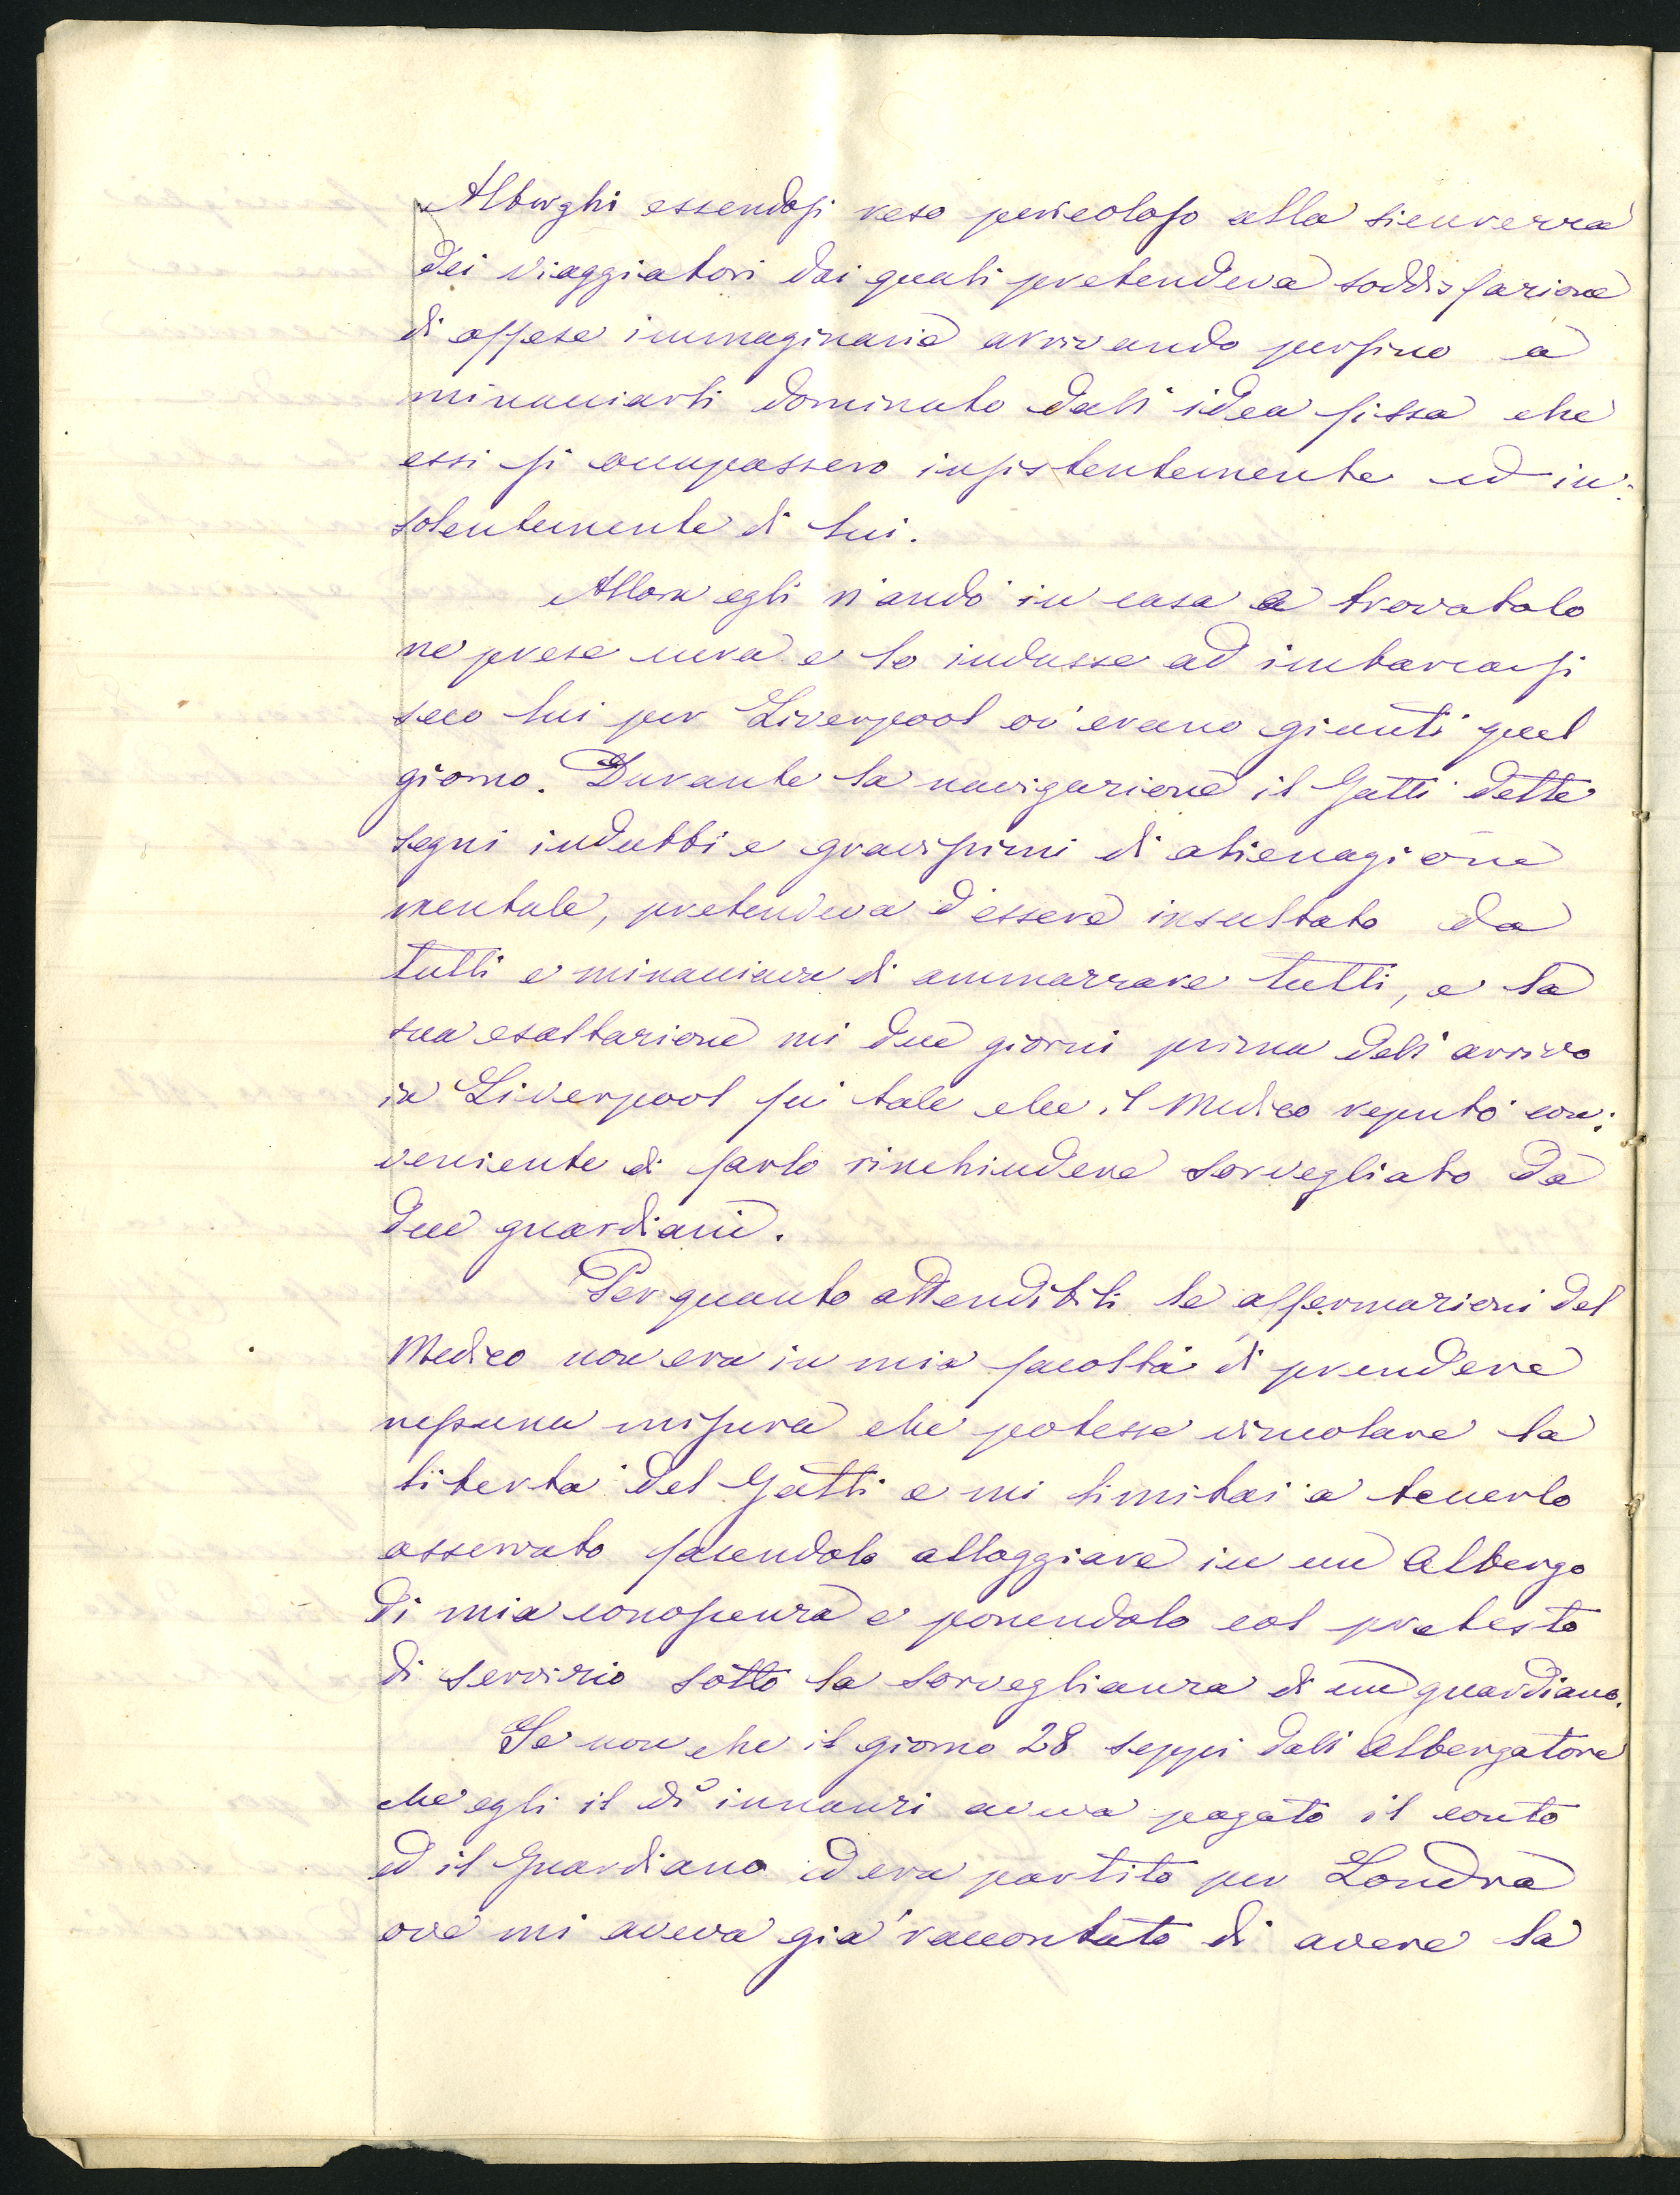 Alberghi essendosi reso pericoloso alla sicurezza
dei viaggiatori dai quali pretendeva soddisfazione
di offese immaginarie arrivando persino a
minacciarli dominato dall'idea fissa che
essi si occupassero insistentemente ed in:
solentemente di lui.
Allora egli v'andò in casa e trovatolo
ne prese cura e lo indusse ad imbarcarsi
seco lui per Liverpool ov'erano giunti quel
giorno. Durante la navigazione il Gatti dette
segni indubbi e gravissimi di alienazione
mentale, pretendeva d'essere insultato da
tutti e minacciava di ammazzare tutti, e la
sua esaltazione nei due giorni prima dell'arrivo
in Liverpool fu tale che il Medico reputò con:
veniente di farlo rinchiudere sorvegliato da
due guardiani.
Per quanto attendibili le affermazioni del
Medico non era in mia facoltà di prendere
nessuna misura che potesse vincolare la
libertà del Gatti e mi limitai a tenerlo
osservato facendolo alloggiare in un Albergo
di mia conoscenza e ponendolo col pretesto
di servizio sotto la sorveglianza di un guardiano.
Se non che il giorno 28 seppi dall'Albergatore
che egli il dì innanzi aveva pagato il conto
ed il Guardiano ed era partito per Londra
ove mi aveva già raccontato di avere la